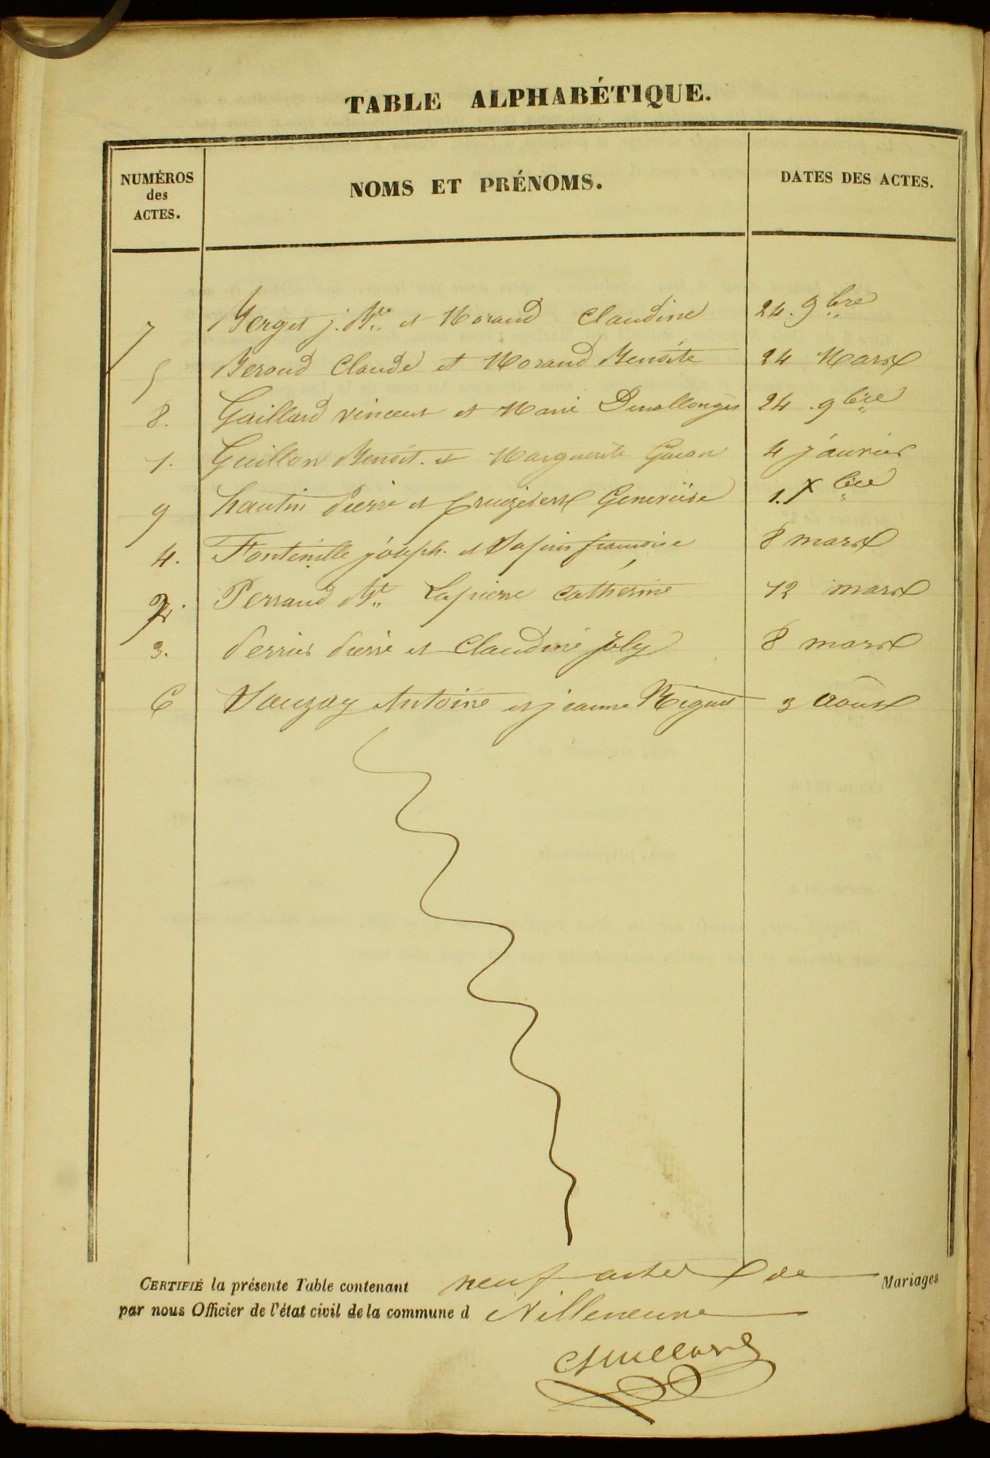 TABLE ALPHABÉTIQUE.
NUMÉROS
des
ACTES.
NOMS ET PRÉNOMS.
DATES DES ACTES.
7 Berget j. Bte et Morand Claudine 24. 9bre
5 Beroud Claude et Morand Benoite 24 Mars
8. Gaillard vincent et Marie 24 . 9bre
1. Guillon Benoit. et Marguerite 4 janvier
9 hautin Pierre et Genevieve 1. Xbre
4. Fontenille joseph. et françoise 8 mars
2. Perraud Bte Lapierre Catherine 12 mars
3. Perrier Pierre et Claudine joly 8 mars
6 Vauzay Antoine et jeanne Riguet 3 Août
CERTIFIÉ la présente Table contenant neuf actes de Mariages
par nous Officier de l'état civil de la commune d Villeneuve